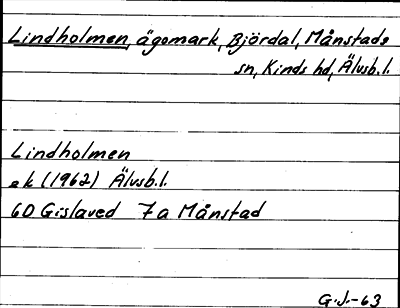 Lindholmen, ägomark, Björdal, Månstads
sn, Kinds hd, Älvsb.l.
Lindholmen
ek (1962) Älvsb.l.
6D Gislaved 7a Månstad
G.J.-63